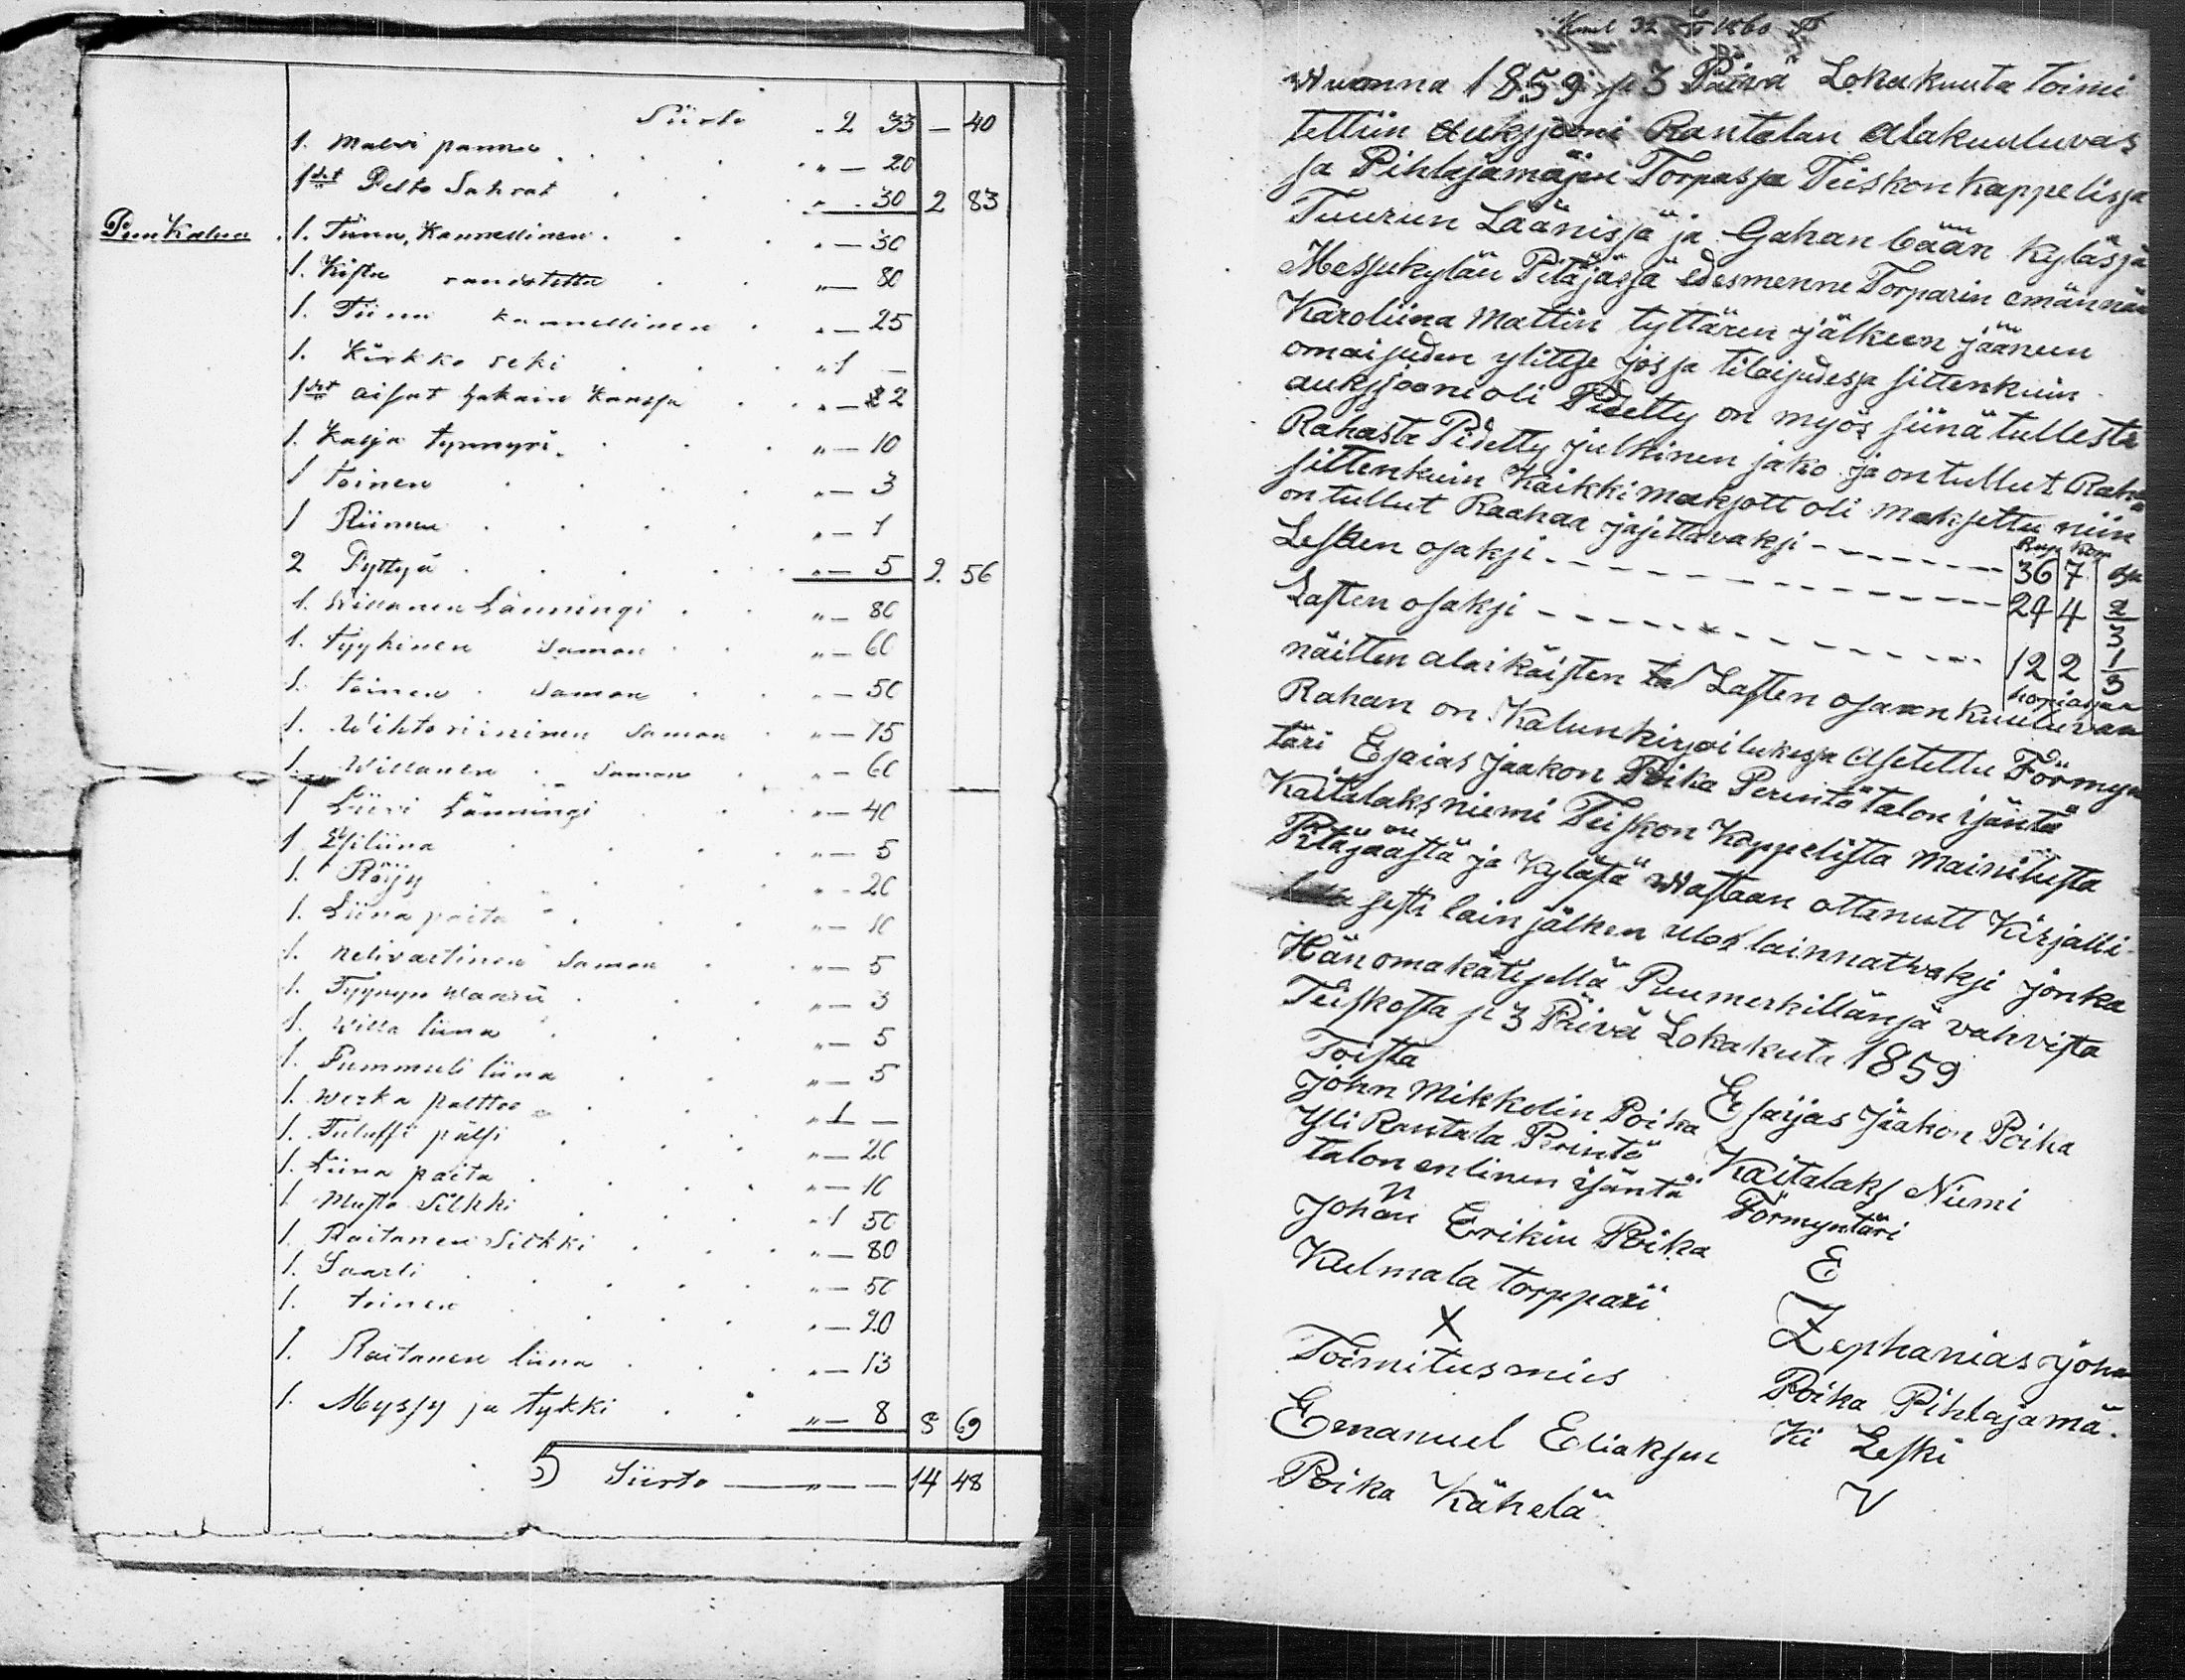 Siirto " 2 33 — 40
1. Malvi pannu " — 20
1det Pelto Sahrat " - 30 2 83
Puu Kalua 1. Tiinu, Kannellinen " — 30
1. Kistu " — 80
1. Tiinu kannellinen " — 25
1. Kirkko reki " 1 —
1det aisat hakain kanssa " — 22
1. Kalja tynnyri " — 10
1 toinen " — 3
1 " — 1
2 Pyttyä " — 5 2. 56
1. Willanen Länningi " — 80
1. tyykinen Saman " — 60
1. toinen Saman " — 50
1. Wihtoriininen Saman " — 75
1. Willanen Saman " — 60
1 Liivi Länningi " — 40
1 Esiliina " — 5
1. Röijy " — 20
1. Liina paita " — 10
1. nelivartinen Saman " — 5
1. Tyynyn waaru " — 3
1. Willa liina " — 5
1. Pummuli liina " — 5
1. werka palttoo " 1 —
1. Tuluppi pälsi " — 20
1. Liina paita " — 10
1 Musta Silkki " 1 50
1. Raitanen Silkki " — 80
1. Saarli " — 50
1. toinen " — 20
1. Raitanen liina " — 13
1. Myssy ja tykki " — 8 8 69
5 Siirto — " — — 14 48
Wuonna 1859 ja 3 Päivä Lokakuuta toimi
tettiin Auksjooni Rantalan Alakuuluvas
sa Pihlajamäjen Torpassa Teiskon kappelissa
Tuurun Läänissä ja Gahanbään Kylässä
Messukylän Pitäjässä edesmenne Torparin emännän
Karoliina Mattin tyttären jälkeen jääneen
omaisuden ylitse jossa tilaisudessa sittenkuin
auksjooni oli Pidetty on myös siinä tullesta
Rahasta Pidetty julkinen jako ja on tullut Raha
sittenkuin Kaikki maksott oli maksettu niin
on tullut Raahaa jajettavaksi - - - - - - Rup Kop 36 7
Lesken osaksi - - - - - - 24 4 2/3
Lasten osaksi - - - - - - 12 2 1/3
näitten alaikäisten Lasten osaan kuuluvan
Rahan on Kalunkirjoilukessa Asetettu Förmyn
täri Esaias Jaakon Poika Perintö talon isäntä
Kaitalaks niemi Teiskon Kappelista mainitusta
Pitäjäästä ja Kylästä Wastaan ottanutt Kirjalli-
sesti lain jälken ulos lainnattvaksi jonka
Hän omakätisellä Puumerkillänsä vahvista
Teiskosta ja 3 Päivä Lokakuta 1859
Toista
John Mikkelin Poika Esaijas Jaakon Poika
Yli Rantala Perintö Kaitalaks Niemi
talon entinen isäntä Förmyntäri
Johan Erikin Poika E
Kulmala torppari
X Zephanias Joha
Toimitusmies Poika Pihlajamä
Emanuel Eliaksen Ki Leski
Poika Kähelä V